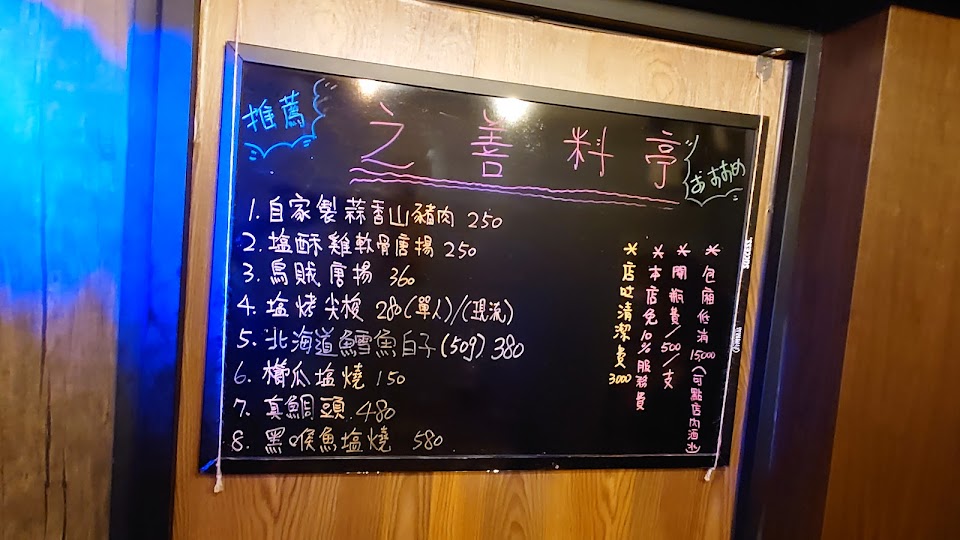 推薦
之善料亭
おすすめ
1. 自家製蒜香山豬肉 250
2. 塩酥雞軟骨唐揚 250
3. 烏賊唐揚 360
4. 塩烤尖梭 280(單人)/(現流)
5. 北海道鱈魚白子(50g) 380
6. 櫛瓜塩燒 150
7. 真鯛頭 480
8. 黑喉魚塩燒 580
*包廂低消15000(可點店內酒水)
*開瓶費/500/支
*本店免10%服務費
*店吐清潔費3000